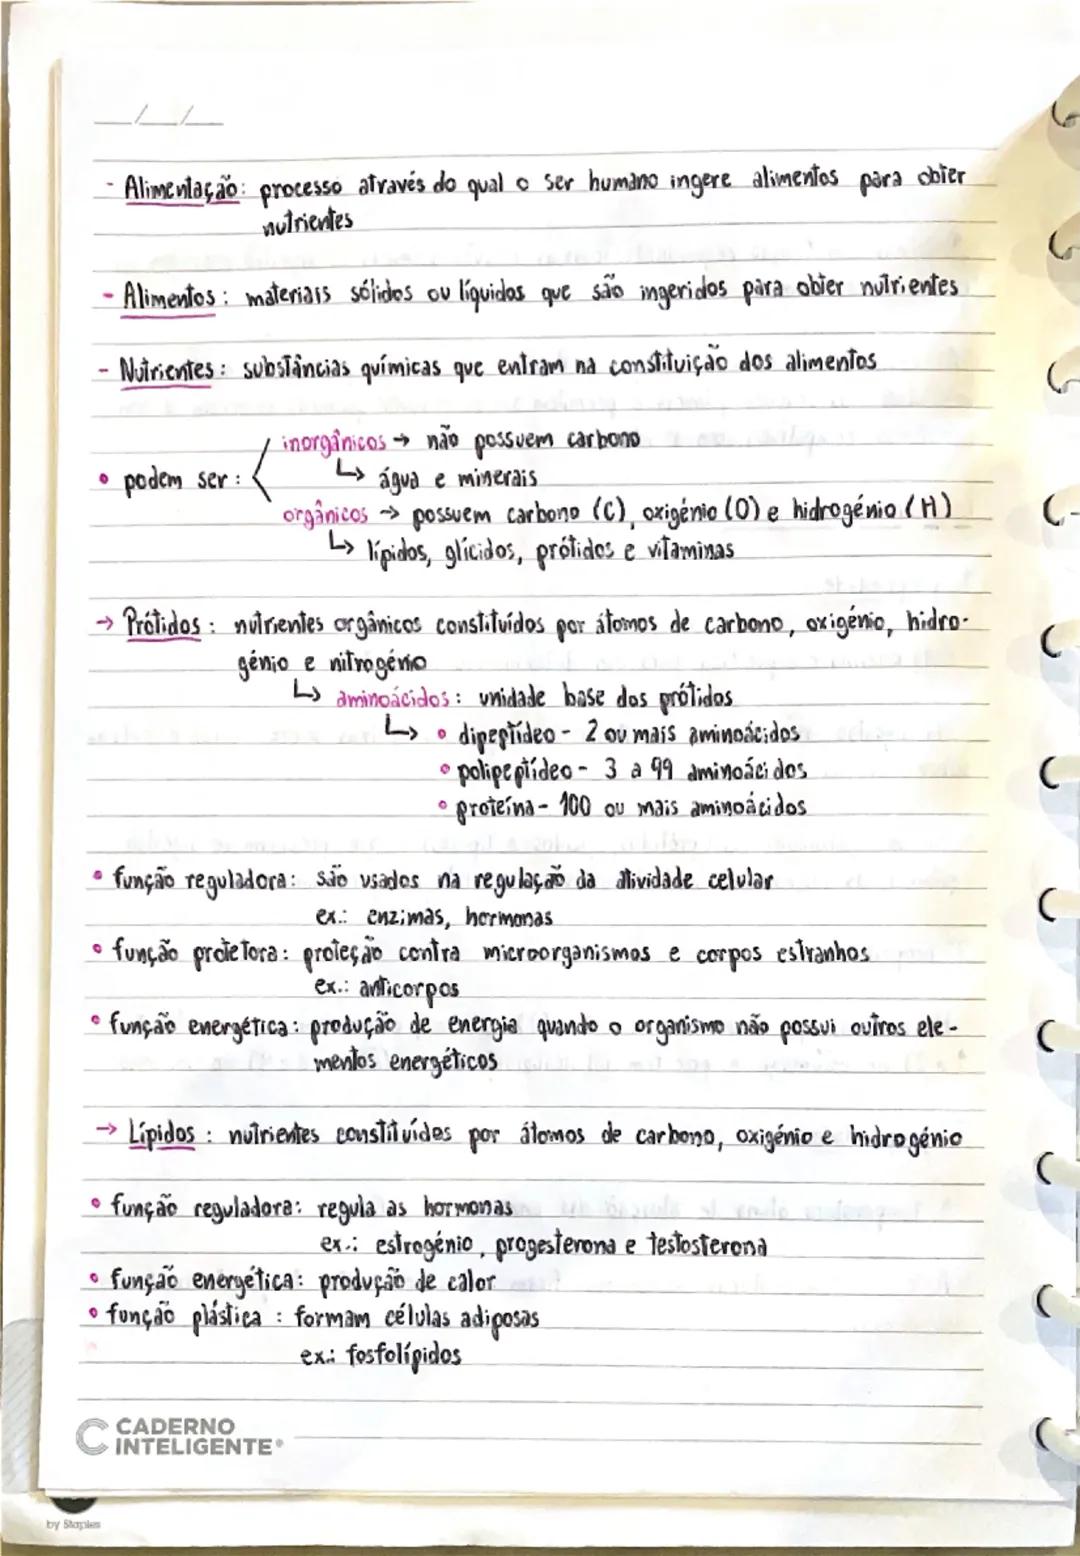 __/__/__
- Alimentação: processo através do qual o ser humano ingere alimentos para obter
nutrientes
- Alimentos: materiais sólidos ou líquidos que são ingeridos para obter nutrientes
- Nutrientes: substâncias químicas que entram na constituição dos alimentos
inorgânicos → não possuem carbono
↳ água e minerais
• podem ser:
orgânicos → possuem carbono (C), oxigénio (O) e hidrogénio (H)
↳ lípidos, glícidos, prótidos e vitaminas
→ Prótidos: nutrientes orgânicos constituídos por átomos de carbono, oxigénio, hidro-
génio e nitrogénio
↳ aminoácidos: unidade base dos prótidos
↳ • dipeptídeo - 2 ou mais aminoácidos
• polipeptídeo - 3 a 99 aminoácidos
• proteína - 100 ou mais aminoácidos
• função reguladora: são usados na regulação da atividade celular
ex.: enzimas, hormonas
• função protetora: proteção contra microorganismos e corpos estranhos
ex.: anticorpos
• função energética: produção de energia quando o organismo não possui outros ele-
mentos energéticos
→ Lípidos: nutrientes constituídos por átomos de carbono, oxigénio e hidrogénio
• função reguladora: regula as hormonas
ex.: estrogénio, progesterona e testosterona
• função energética: produção de calor
• função plástica: formam células adiposas
ex.: fosfolípidos
CADERNO
INTELIGENTE®
by Staples